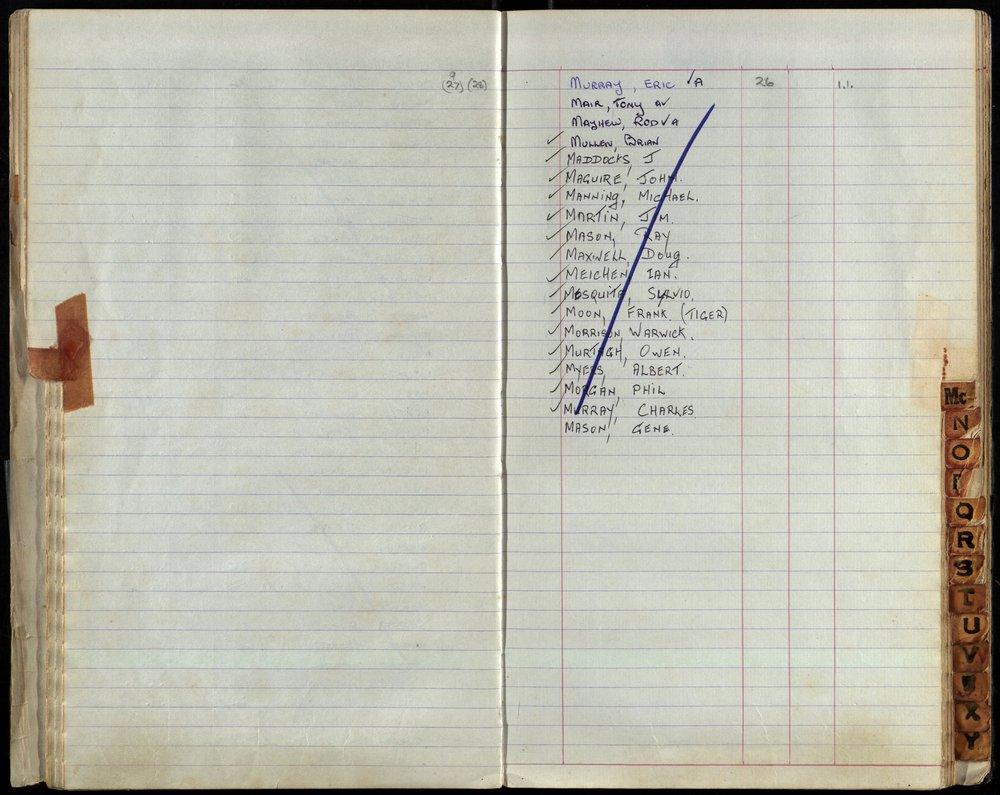 9
(27) (28)
MURRAY, ERIC ✓A 26 1.1.
MAIR, TONY AV
MAYHEW, ROD ✓A
✓ MULLEN, BRIAN
✓ MADDOCKS J
✓ MAGUIRE, JOHN.
✓ MANNING, MICHAEL.
✓ MARTIN, JIM.
✓ MASON, RAY
✓ MAXWELL, DOUG.
✓ MEICHEN, IAN.
✓ MESQUITA, SYLVIO.
✓ MOON, FRANK. (TIGER)
✓ MORRISON, WARWICK.
✓ MURTAGH, OWEN.
✓ MYERS, ALBERT.
✓ MORGAN, PHIL
✓ MURRAY, CHARLES
MASON, GENE.
Mc
N
O
Q
R
S
T
U
V
X
Y